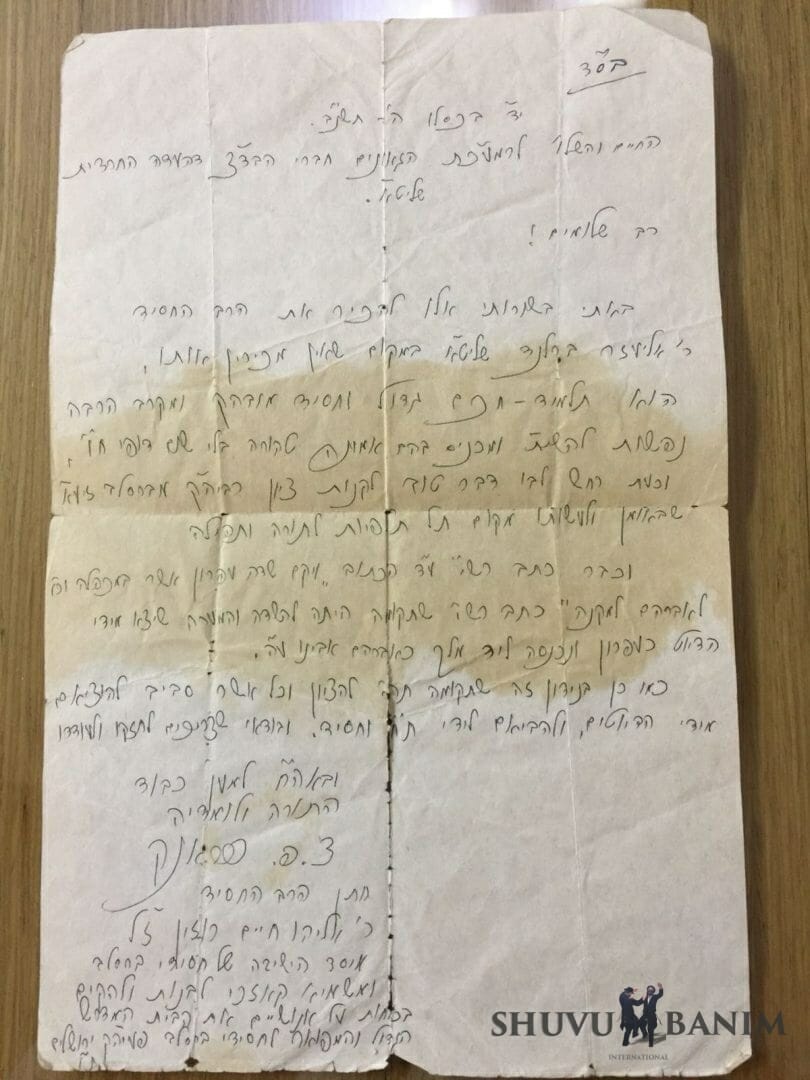 בס״ד
י״ד בכסלו ה׳ תשנ״ב.
החיים והשלו׳ למע״כת הגאונים חברי הבד״צ דהעדה החרדית
שליט״א.
רב שלומים!
באתי בשורותי אלו להכיר את הרב החסיד
ר׳ אליעזר ברלנד שליט״א במקום שאין מכירין אותו,
הוא תלמיד-חכם גדול וחסיד מובהק ומקרב הרבה
נפשות להשי״ת ומכניס בהם אמונה טהורה בלי שום דופי ח״ו,
וכעת רחש לבו דבר טוב לקנות ציון רביה״ק מברסלב זיע״א
שבאומן ולעשותו מקום תל תלפיות לתורה ותפלה
וכבר כתב רש״י עה״כ הכתוב ״ויקם שדה עפרון אשר במכפלה וכו׳
לאברהם למקנה״ כתב רש״י שתקומה היתה להשדה והמערה שיצא מידי
הדיוט כעפרון ונכנסה ליד מלך כאברהם אבינו ע״ה.
כמו כן בנידון זה שתקומה תהי׳ להציון וכל אשר סביב להוציאם
מידי הדיוטים, ולהביאם לידי ת״ח וחסיד. ובודאי שצריכים לחזקו ולעודדו
ובאה״ח למען כבוד
התורה ולומדיה
צ.פ.
חתן הרב החסיד
ר׳ אליהו חיים רוזין ז״ל
מיסד הישיבה של חסידי ברסלב
לבנות ולהקים
את בית המדרש
הגדול והמפואר לחסידי ברסלב פעיה״ק ירושלים
SHUVU BANIM
INTERNATIONAL